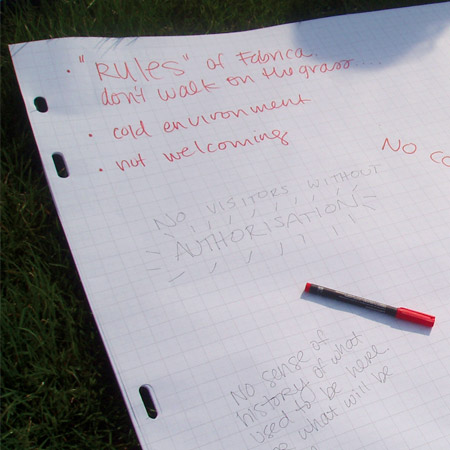 • "Rules" of Fabrica.
don't walk on the grass....
• cold environment
• not welcoming
NO CO
NO VISITORS WITHOUT
AUTHORISATION
No sense of
history of what
used to be here
what will be